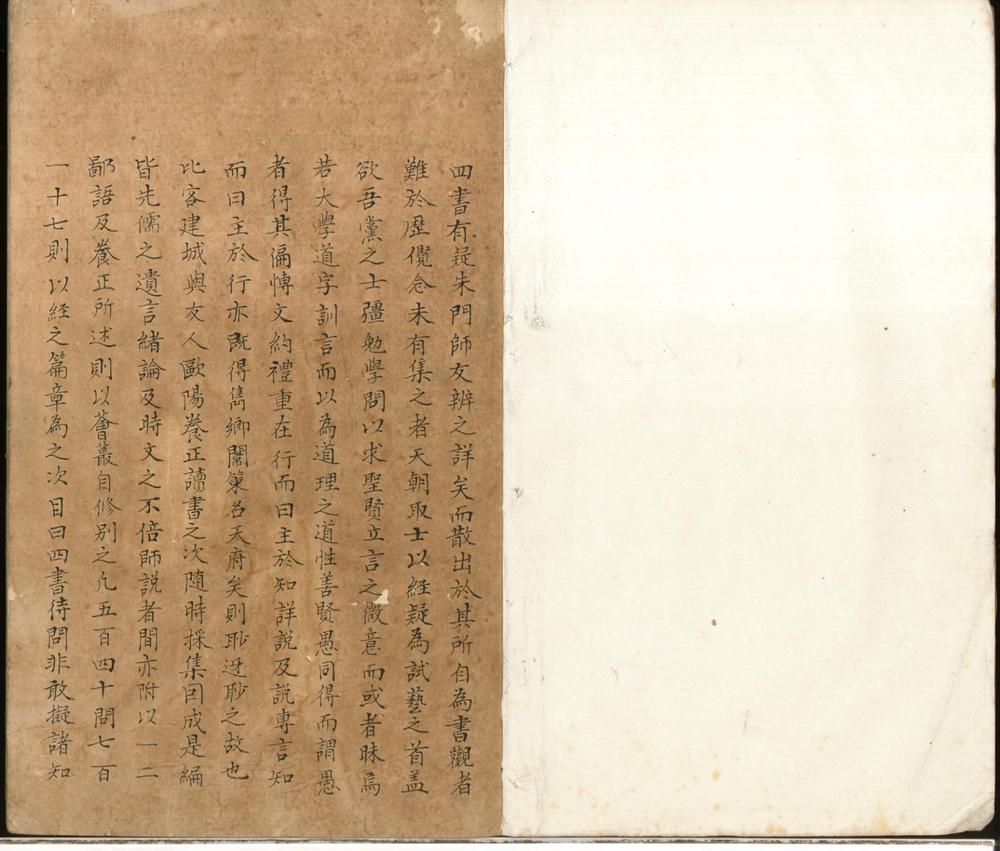 四書有疑朱門師友辨之詳矣而散出於其所自為書觀者
難於歷儧念未有集之者天朝取士以經疑為試藝之首盖
欲吾黨之士彊勉學問以求聖賢立言之微意而或者昧焉
若大學道字訓言而以為道理之道性善賢愚同得而謂愚
者得其偏愽文約禮重在行而曰主於知詳說及説專言知
而曰主於行亦既得雋鄉闈策名天府矣則耴迓耴之故也
比客建城與友人歐陽養正讀書之次隨時採集囙成是編
皆先儒之遺言緒論及時文之不倍師說者間亦附以一二
鄙語及養正所述則以薈蕞自修别之凢五百四十問七百
一十七則以經之篇章為之次目曰四書待問非敢擬諸知